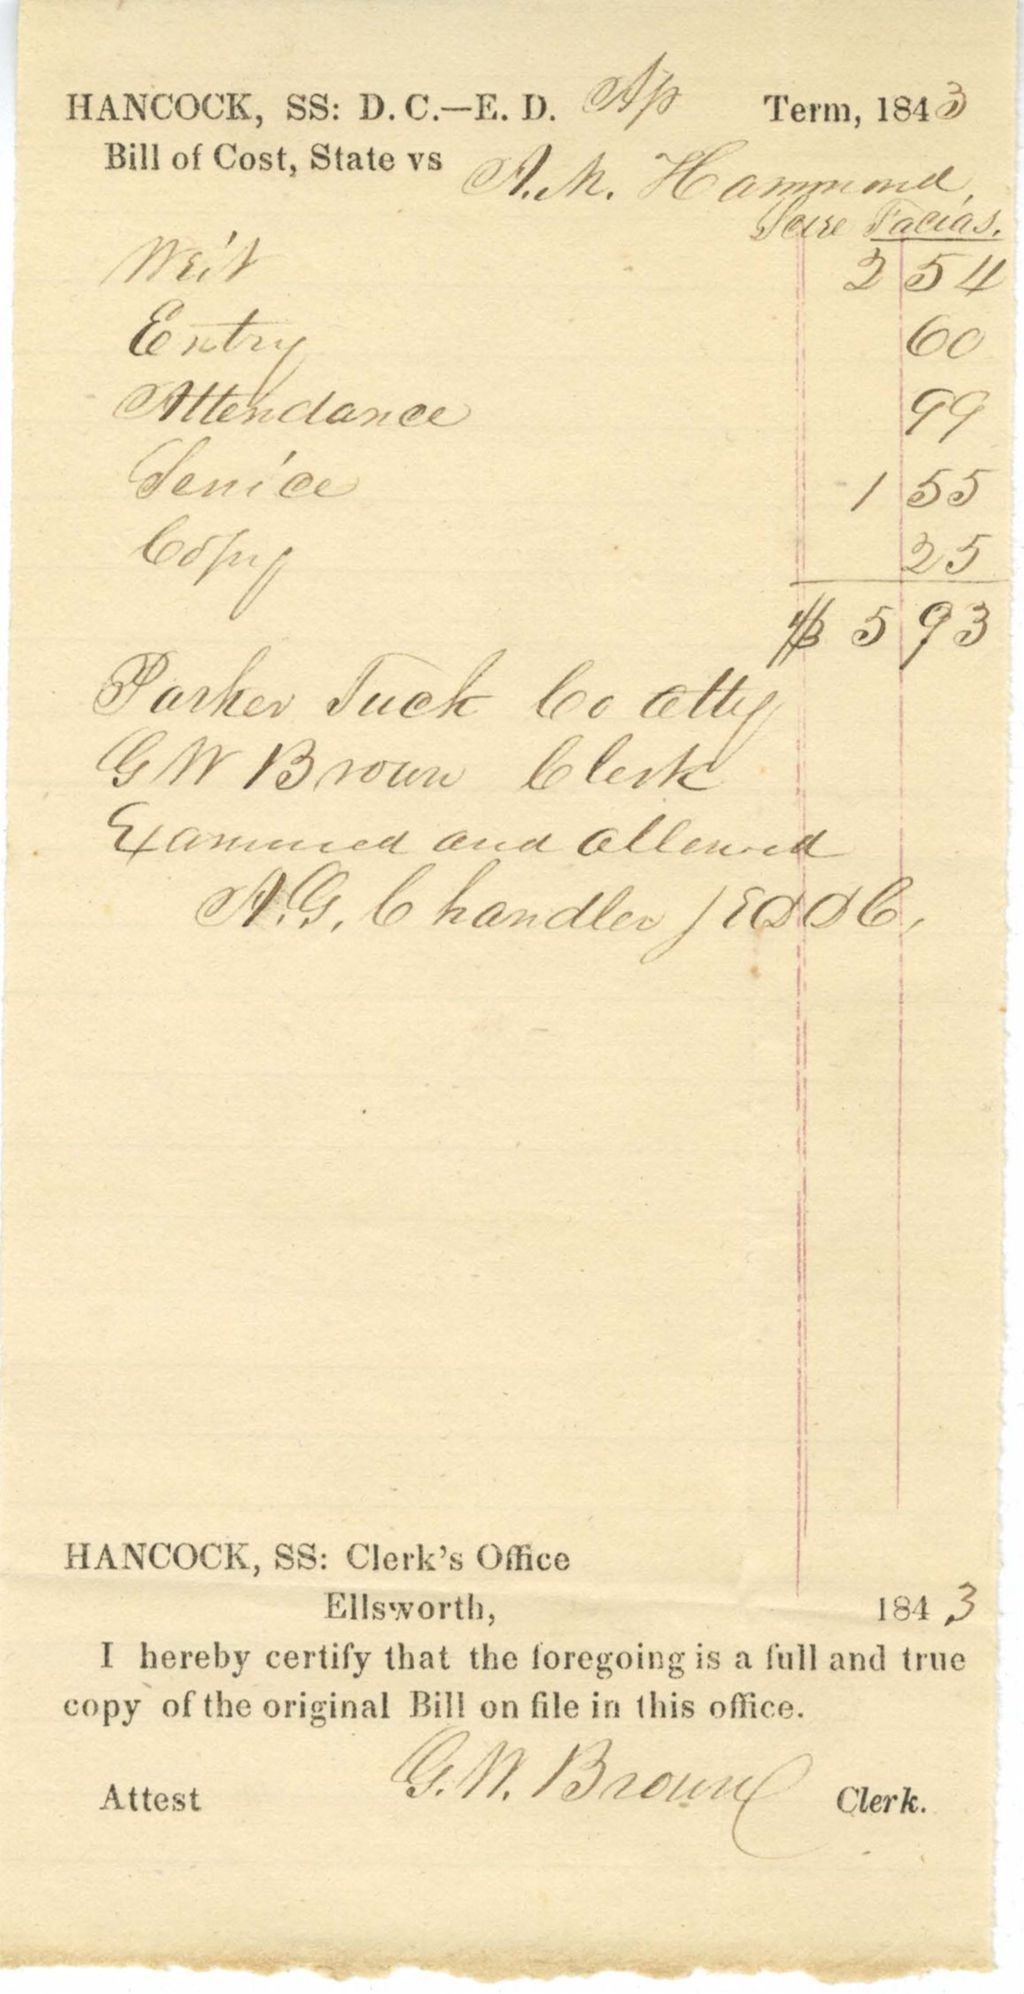 HANCOCK, SS: D. C.—E. D. Ap Term, 1843
Bill of Cost, State vs A. M. Hammond,
Scire Facias.
Writ 2 54
Entry 60
Attendance 99
Service 1 55
Copy 25
$ 5 93
Parker Tuck Co Atty
G W Brown Clerk
Examined and allowed
A. G. Chandler J E D D C.
HANCOCK, SS: Clerk's Office
Ellsworth, 1843
I hereby certify that the foregoing is a full and true
copy of the original Bill on file in this office.
Attest G. W. Brown Clerk.